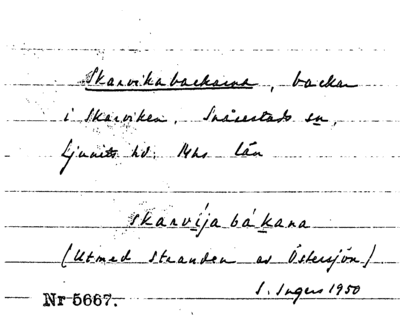 Skarvikabackarna, backar
i Skarviken, Snårestads sn,
Ljunits hd. Mhs län
skarvíjabákana
(Utmed stranden av Östersjön)
I. Ingers 1950
Nr 5667.